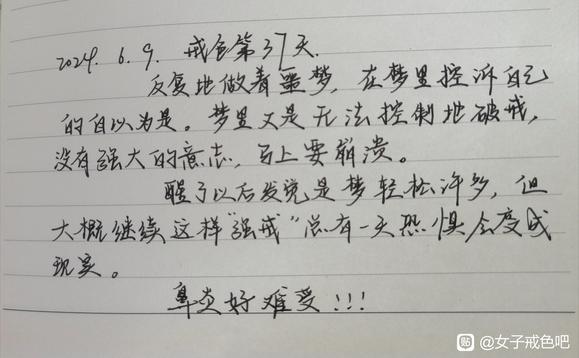 2024. 6. 9. 戒色第37天.
反复地做着噩梦，在梦里控诉自己
的自以为是。梦里又是无法控制地破戒，
没有强大的意志，马上要崩溃。
醒了以后发觉是梦轻松许多，但
大概继续这样"强戒"总有一天恐惧会变成
现实。
鼻炎好难受!!!
贴 @女子戒色吧